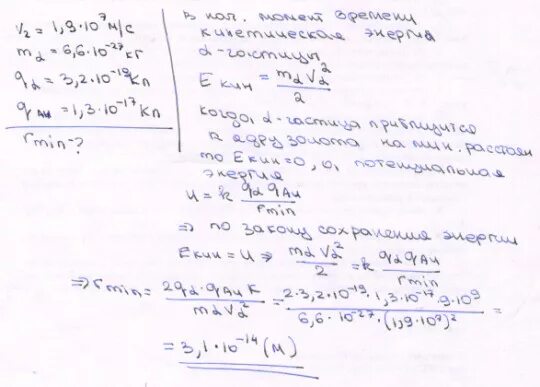 V₂ = 1,9·10⁷ м/с
m_α = 6,6·10⁻²⁷ кг
q_α = 3,2·10⁻¹⁹ Кл
q_Au = 1,3·10⁻¹⁷ Кл
r_min - ?
В нач. момент времени
кинетическая энергия
α-частицы
E кин = m_α V_α² / 2
когда α-частица приблизится
к ядру золота на мин. расстоян
то E кин = 0, а потенциальная
энергия
U = k q_α q_Au / r_min
⇒ по закону сохранения энергии
E кин = U ⇒ m_α V_α² / 2 = k q_α q_Au / r_min
⇒ r_min = 2q_α · q_Au k / m_α V_α² = 2·3,2·10⁻¹⁹·1,3·10⁻¹⁷·9·10⁹ / 6,6·10⁻²⁷·(1,9·10⁷)² =
= 3,1·10⁻¹⁴ (м)